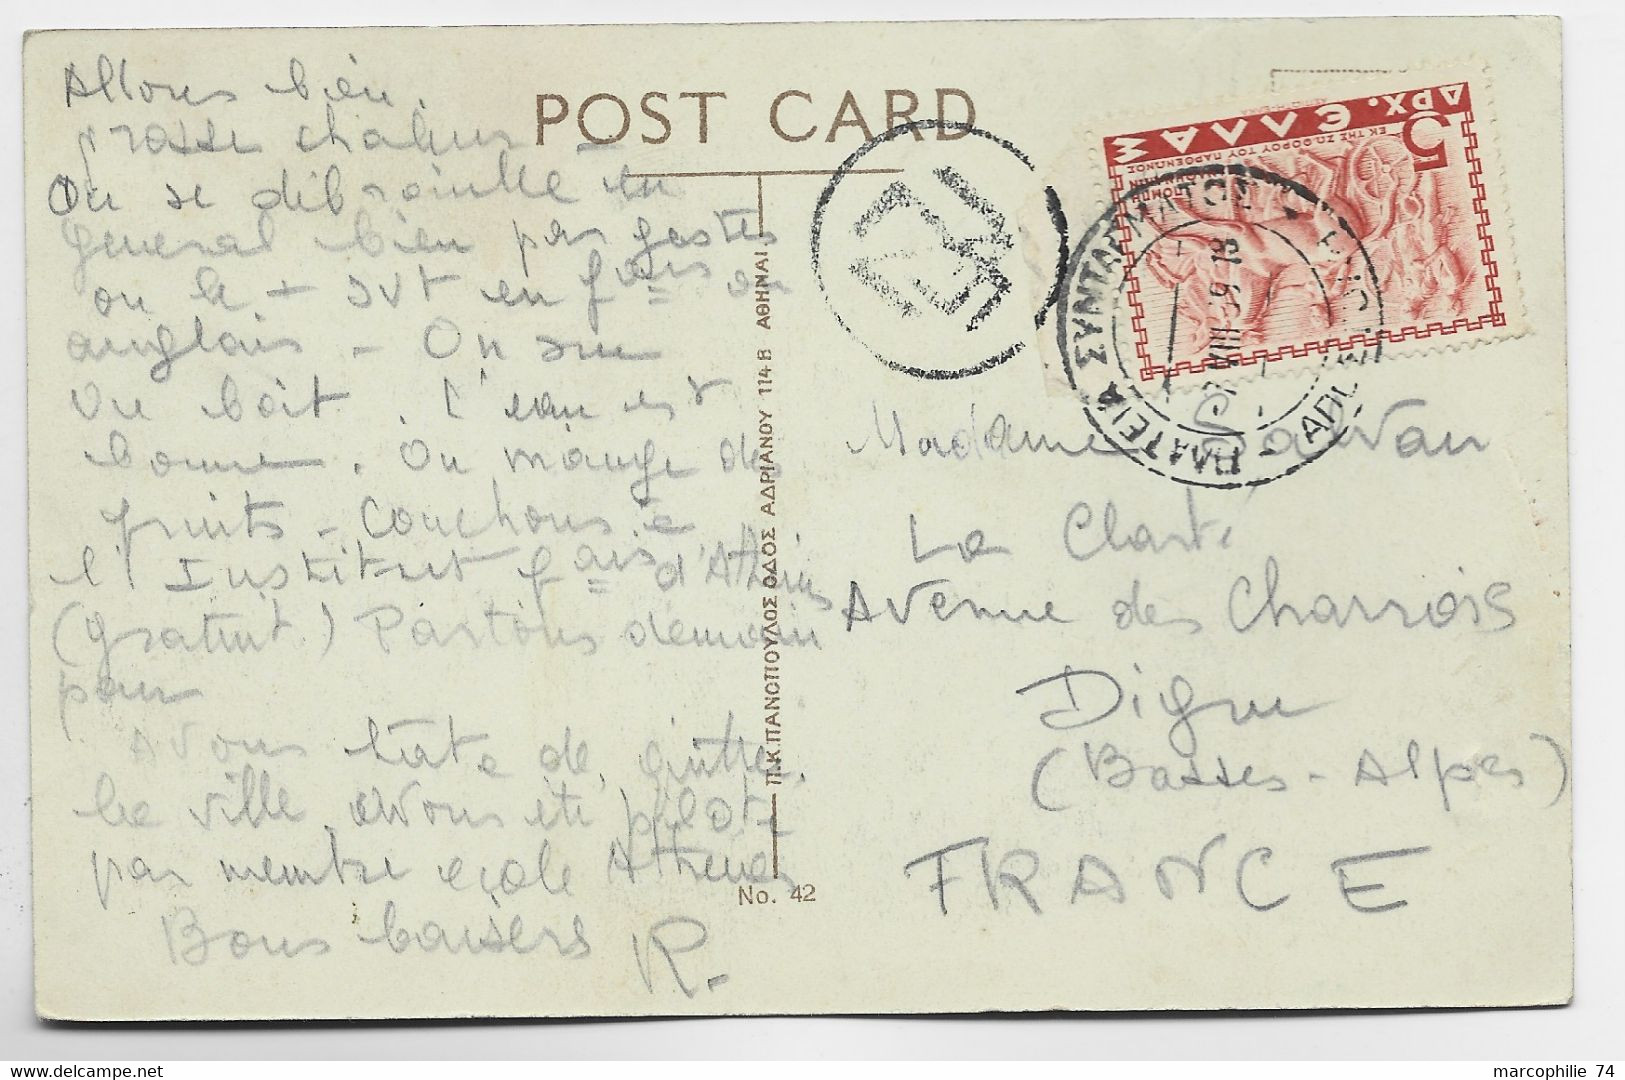 Allons bien.
grosse chaleur
On se débrouille en
general bien par gestes
ou le + svt en fçais ou
anglais - On sue
On boit. l'eau est
bonne. On mange des
fruits - Couchons à
l'Institut fçais d'Athènes
(gratuit.) Partons demain
pour
Avons hâte de quitter
la ville. Avons été piloté
par membre école Athènes
Bons baisers R.
POST CARD
Π.Κ. ΠΑΝΟΠΟΥΛΟΣ ΟΔΟΣ ΑΔΡΙΑΝΟΥ 114 Β ΑΘΗΝΑΙ
No. 42
5 ΔΡΧ. ΕΛΛΑΣ
ΕΚ ΤΗΣ ΖΩΟΦΟΡΟΥ ΤΟΥ ΠΑΡΘΕΝΩΝΟΣ
ΠΛΑΤΕΙΑ ΣΥΝΤΑΓΜΑΤΟΣ
VIII 39 18
Madame Salvan
La Clarté
Avenue des Charrois
Digne
(Basses-Alpes)
FRANCE
marcophilie 74